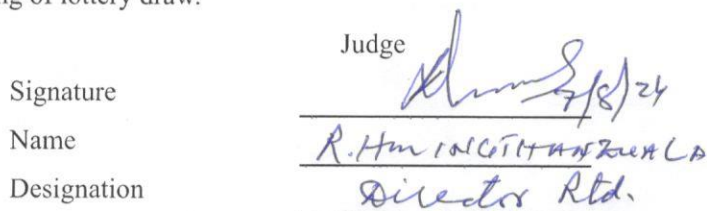 of lottery draw.
Judge
Signature 7/8/24
Name R. HMINGTHANZUALA
Designation Director Rtd.